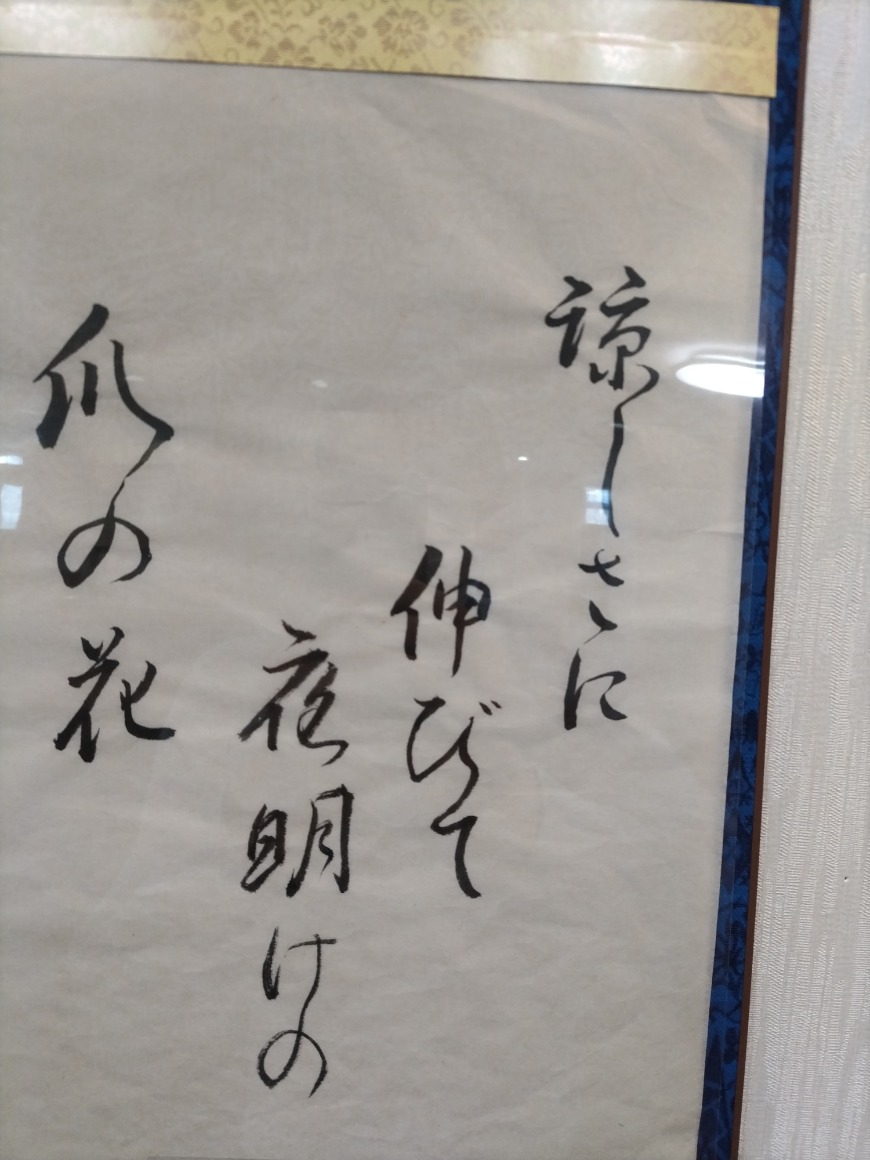 諒しさに
伸びて
夜明けの
爪の花